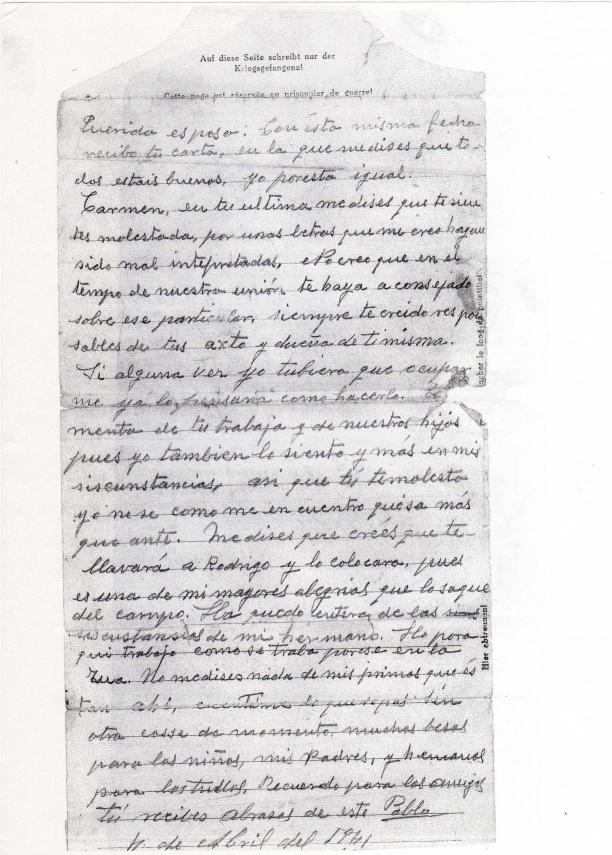 Auf diese Seite schreibt nur der
Kriegsgefangene!
Cette page est réservée au prisonnier de guerre!
Querida esposa: Con ésta misma fecha
recibo tu carta, en la que medises que to-
dos estais buenos, yo poresta igual.
Carmen, en tu ultima medises que te sien
tes molestada, por unas letras que me creo hayan
sido mal intepretadas, No creo que en el
tempo de nuestra unión te haya a consejado
sobre ese particular, siempre te creido respon
sables de tus axto y dueña de ti misma.
Si alguna vez yo tubiera que ocupar
me ya lo pensaria como hacerlo.
menta de tu trabajo y de nuestros hijos
pues yo tambien lo siento y más en mis
siscunstancias, asi que tú temolesta
yo no se como me en cuentro quisa más
que ante. Medises que creés que te-
llavará a Rodrigo y lo colocara, pues
es una de mi mayores alegrias que lo saque
del campo. Ha puedo entera de las
siscustansias de mi hermano. Yo pora
qui trabajo como se traba porese en la
No medises nada de mis primos que és
tan ahi, cuentame lo que sepas Sin
otra cosse de momento, muchos besos
para los niños, mis Padres, y hemanos
para los tullos, Recuerdo para los amigos
tú recibes abrasos de este Pablo
4 de Abril del 1941
Hier abtrennen!